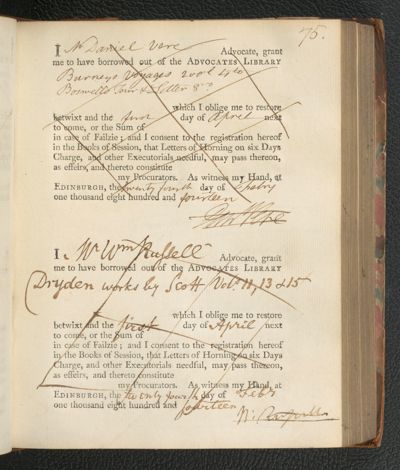 75.
I Mr Daniel Vere Advocate, grant
me to have borrowed out of the ADVOCATES LIBRARY
Burneys Voyages 4to
Boswells Tour & Letter 8vo
which I oblige me to restore
betwixt and the first day of April next
to come, or the Sum of
in case of Failzie; and I consent to the registration hereof
in the Books of Session, that Letters of Horning on six Days
Charge, and other Executorials needful, may pass thereon,
as effeirs, and thereto constitute
my Procurators. As witness my Hand, at
EDINBURGH, the twenty fourth day of Febry
one thousand eight hundred and fourteen
I, Mr Wm Russell Advocate, grant
me to have borrowed out of the ADVOCATES LIBRARY
Dryden works by Scott Vol. 11, 13 & 15
which I oblige me to restore
betwixt and the first day of April next
to come, or the Sum of
in case of Failzie; and I consent to the registration hereof
in the Books of Session, that Letters of Horning on six Days
Charge, and other Executorials needful, may pass thereon,
as effeirs, and thereto constitute
my Procurators. As witness my Hand, at
EDINBURGH, the twenty fourth day of Febr
one thousand eight hundred and fourteen